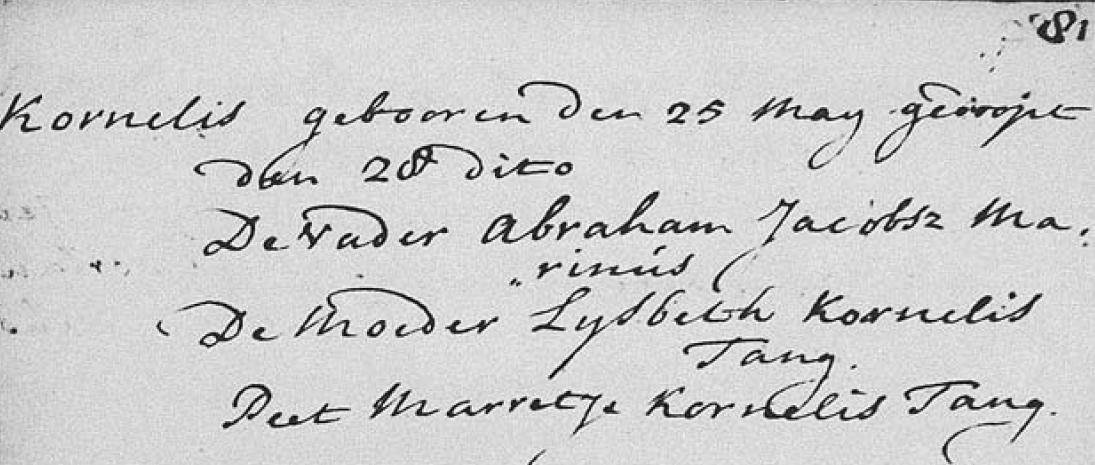 81
Kornelis gebooren den 25 May gedoopt
den 28 dito
De Vader Abraham Jacobsz Ma,
"rinús
De Moeder Lysbeth Kornelis
Tang.
Peet Marretje Kornelis Tang.